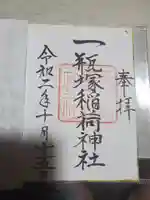 奉拝
一瓶塚稲荷神社
令和二年十月十五